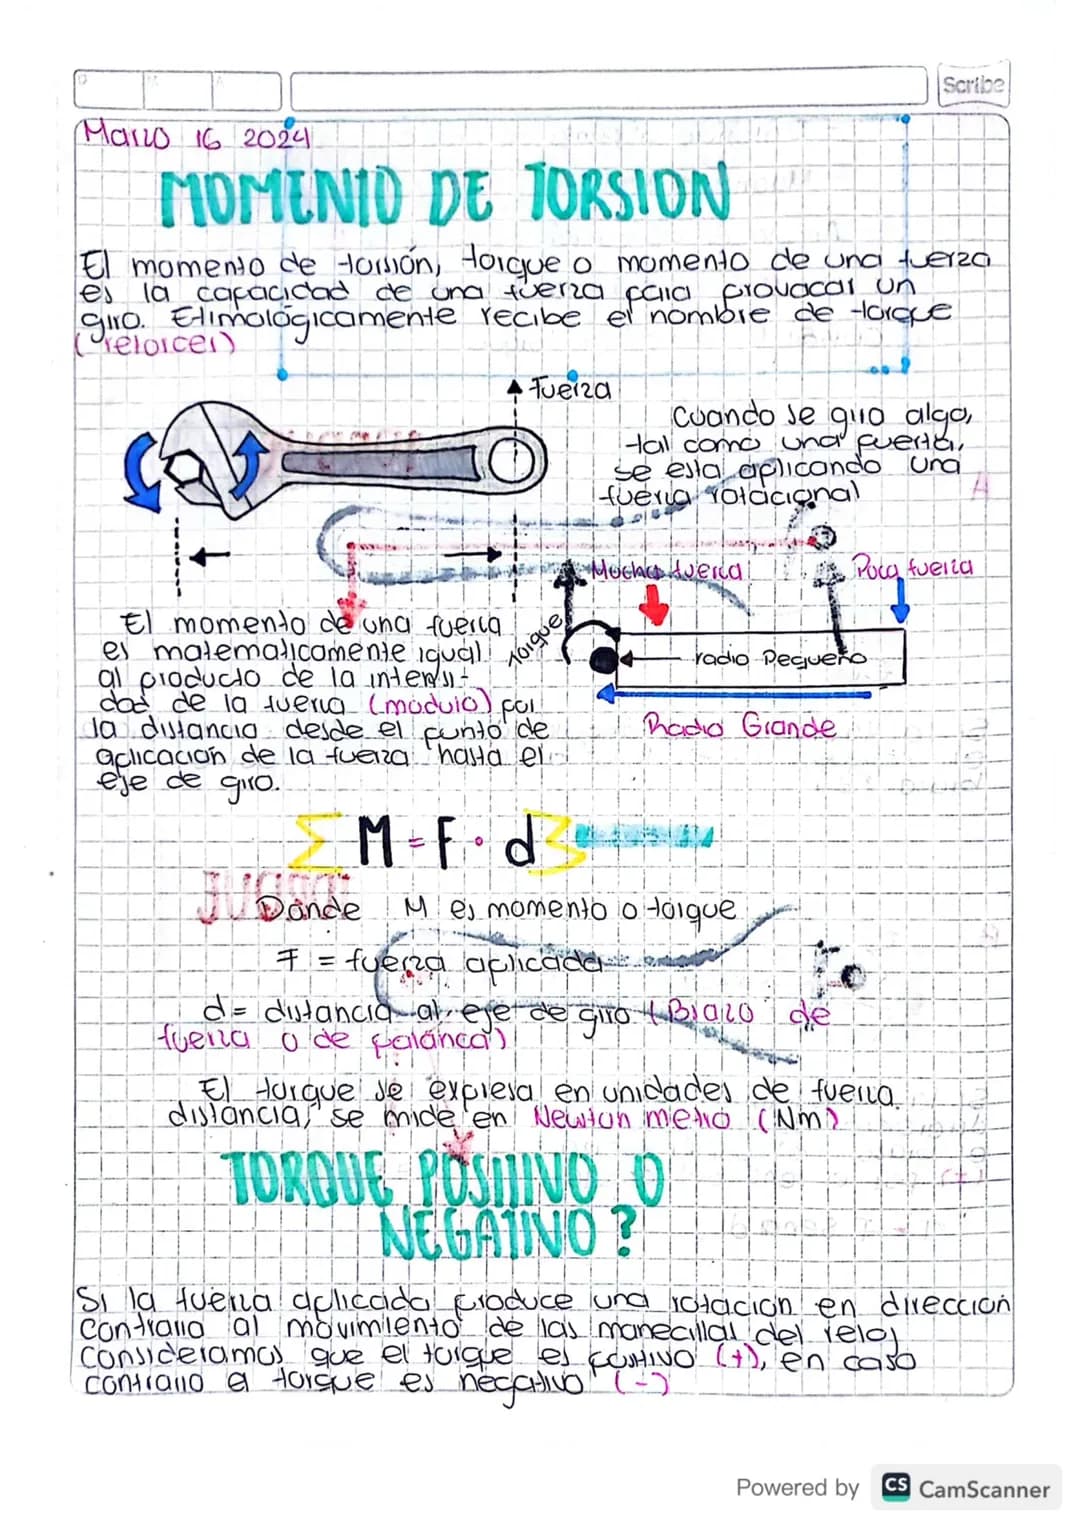 Scribe
Marzo 16 2024
MOMENTO DE TORSION
El momento de torsión, torque o momento de una fuerza
es la capacidad de una fuerza para provocar un
giro. Etimológicamente recibe el nombre de torque
(retorcer)
Fuerza
Cuando se giro algo,
tal como una puerta,
se esta aplicando una
fuerza rotacional
A
Mucha fuerza
Poca fuerza
Torque
radio Pequeño
Radio Grande
El momento de una fuerza
es matematicamente igual
al producto de la intensi-
dad de la fuerza (modulo) por
la distancia desde el punto de
aplicación de la fuerza hasta el
eje de giro.
M = F · d
Donde M es momento o torque
F = fuerza aplicada
d = distancia al eje de giro (Brazo de
fuerza o de palanca)
El torque se expresa en unidades de fuerza
distancia, se mide en Newton metro (Nm)
TORQUE POSITIVO O
NEGATIVO?
Si la fuerza aplicada produce una rotacion en direccion
contrario al movimiento de las manecillas del reloj
consideramos que el torque es positivo (+), en caso
contrario el torque es negativo (-)
Powered by CS CamScanner